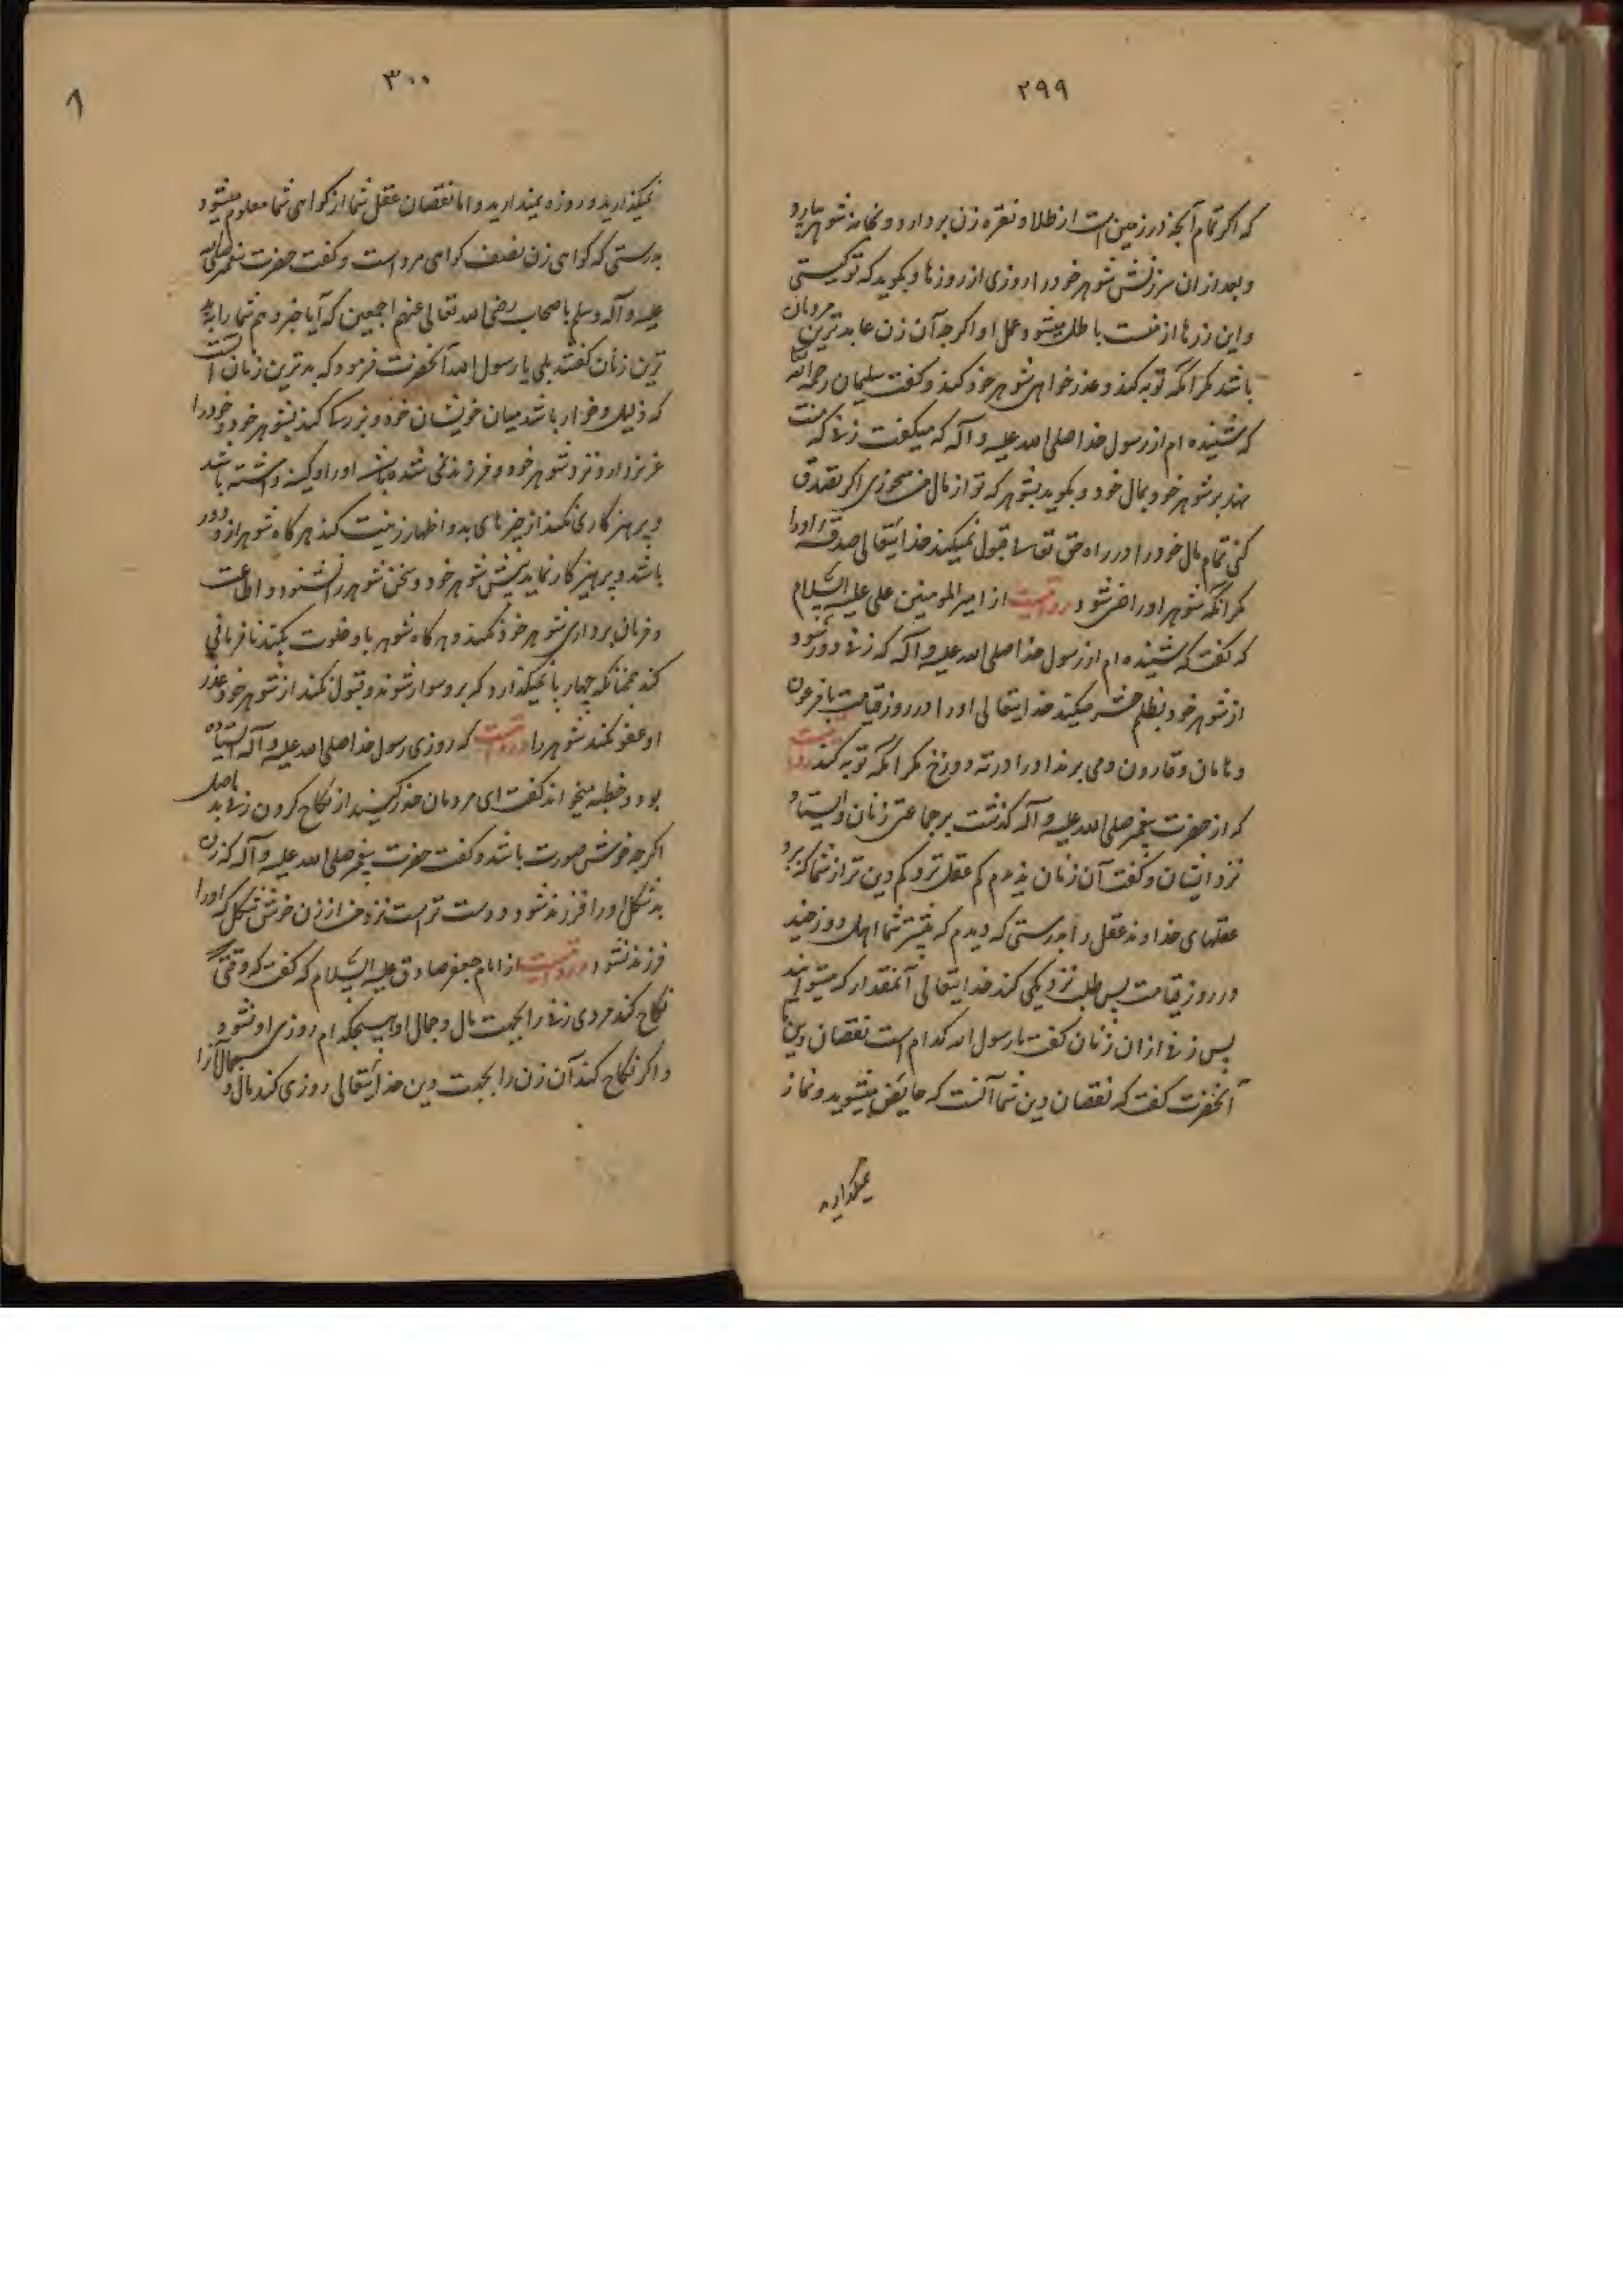 ۲۹۹
که اگر تمام آنچه در زمین است از طلا و نقره زن بردارد و بخانه شوهر بیارد
و بعد از ان سرزنش شوهر خود را روزی از روزها و بکوید که تو کیستی
و این زرها از منست باطل میشود عمل او اگرچه آن زن عابدترین مردمان
باشد مکر انکه توبه کند و عذرخواهی شوهر خود کند و کفت سلیمان رحمه الله
که شنیده ام از رسول خدا صلی الله علیه و آله که میکفت زنی که منت
نهد بر شوهر خود بمال خود و بکوید بشوهر که تو از مال من میخوری اگر تصدق
کنی تمام مال خود را در راه حق تعالی قبول نمیکند خدایتعالی صدقه او را
مکر انکه شوهر او راضی شود و روایت است از امیر المومنین علی علیه السلام
که کفت که شنیده ام از رسول خدا صلی الله علیه و آله که زنی دور شود
از شوهر خود بظلم حشر میکند خدایتعالی او را در روز قیامت با فرعون
و هامان و قارون و می برند او را در ته دوزخ مکر انکه توبه کند روایت است
که از حضرت پیغمبر صلی الله علیه و آله کذشت بر جماعتی زنان و ایستاد
نزد ایشان و کفت آن زنان ندیدم کم عقل تر و کم دین تر از شما که برد
عقلهای خداوند عقل را بدرستی که دیدم که بیشتر شما اهل دوزخید
در روز قیامت پس طلب نزدیکی کند خدایتعالی آنمقدار که میتوانید
پس زنی از ان زنان کفت یا رسول الله کدام است نقصان دین
آنحضرت کفت که نقصان دین شما آنست که حایض میشوید و نماز
نمیکذارید
۳۰۰
نمیکذارید و روزه نمیدارید و اما نقصان عقل شما از کواهی شما معلوم میشود
بدرستی که کواهی زن نصف کواهی مرد است و کفت حضرت پیغمبر صلی الله
علیه و آله و سلم باصحاب رضی الله تعالی عنهم اجمعین که آیا خبر دهم شما را به بد
ترین زنان کفتند بلی یا رسول الله آنحضرت فرمود که بدترین زنان آنست
که ذلیل و خوار باشد میان خویشان خود و بزرکی کند بشوهر خود و خود را
عزیز دارد نزد شوهر خود و فرزندی نشده باشد او را و کینه داشته باشد
و پرهیزکاری نکند از چیزهای بد و اظهار زینت کند هر کاه شوهر از و دور
باشد و پرهیزکار نماید پیش شوهر خود و سخن شوهر را نشنود و اطاعت
و فرمان برداری شوهر خود نکند و هر کاه شوهر با و خلوت بکند نافرمانی
کند چنانکه چهارپا نمیکذارد که برو سوار شوند و قبول نکند از شوهر خود عذر
او عفو نکند شوهر را و روایت است که روزی رسول خدا صلی الله علیه و آله ایستاده
بود و خطبه میخواند کفت ای مردمان حذر کنید از نکاح کردن زن بد اصل
اگرچه خوش صورت باشد و کفت حضرت پیغمبر صلی الله علیه و آله که زن
بدشکل او را فرزند شود دوست تر است نزد من از زن خوش شکل که او را
فرزند نشود و روایت است از امام جعفر صادق علیه السلام که کفت که وقتی که
نکاح کند مردی زنی را بجهت مال و جمال او هیچکدام روزی او نشود
و اگر نکاح کند آن زن را بجهت دین خدایتعالی روزی کند مال و جمال آنرا